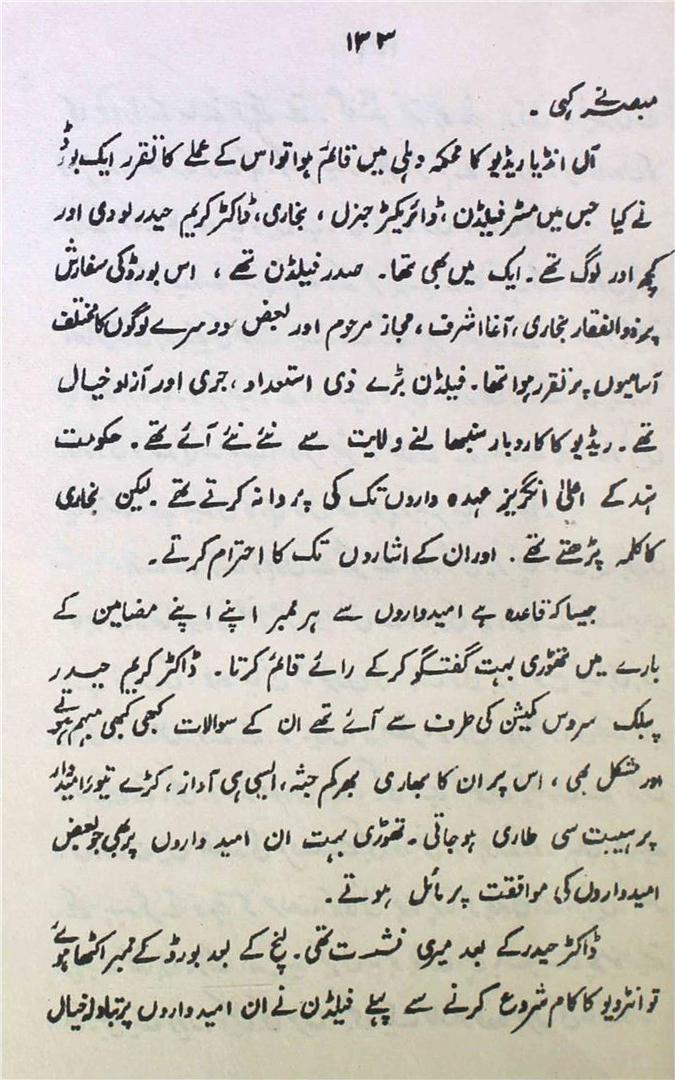 ۱۳۳
مبصر نے کہی ۔
آل انڈیا ریڈیو کا محکمہ دہلی میں قائم ہوا تو اس کے عملے کا تقرر ایک بورڈ
نے کیا جس میں مسٹر فیلڈن، ڈائریکٹر جنرل ، بخاری، ڈاکٹر کریم حیدر لودی اور
کچھ اور لوگ تھے۔ ایک میں بھی تھا۔ صدر فیلڈن تھے ، اس بورڈ کی سفارش
پر ذوالفقار بخاری، آغا اشرف، مجاز مرحوم اور بعض دوسرے لوگوں کا مختلف
آسامیوں پر تقرر ہوا تھا۔ فیلڈن بڑے ذی استعداد، جری اور آزاد خیال
تھے۔ ریڈیو کا کاروبار سنبھالنے ولایت سے نئے نئے آئے تھے۔ حکومت
ہند کے اعلیٰ انگریز عہدہ داروں تک کی پروا نہ کرتے تھے۔ لیکن بخاری
کا کلمہ پڑھتے تھے ۔ اور ان کے اشاروں تک کا احترام کرتے۔
جیسا کہ قاعدہ ہے امیدواروں سے ہر ممبر اپنے اپنے مضامین کے
بارے میں تھوڑی بہت گفتگو کرکے رائے قائم کرتا۔ ڈاکٹر کریم حیدر
پبلک سروس کمیشن کی طرف سے آئے تھے ان کے سوالات کبھی کبھی مبہم ہوتے
اور مشکل بھی، اس پر ان کا بھاری بھرکم جثہ، ایسی ہی آواز، کڑے تیور، امیدوار
پر ہیبت سی طاری ہو جاتی۔ تھوڑی بہت ان امیدواروں پر بھی جو بعض
امیدواروں کی موافقت پر مائل ہوتے۔
ڈاکٹر حیدر کے بعد میری نشست تھی۔ لنچ کے بعد بورڈ کے ممبر اکٹھا ہوئے
تو انٹرویو کا کام شروع کرنے سے پہلے فیلڈن نے ان امیدواروں پر تبادلہ خیال